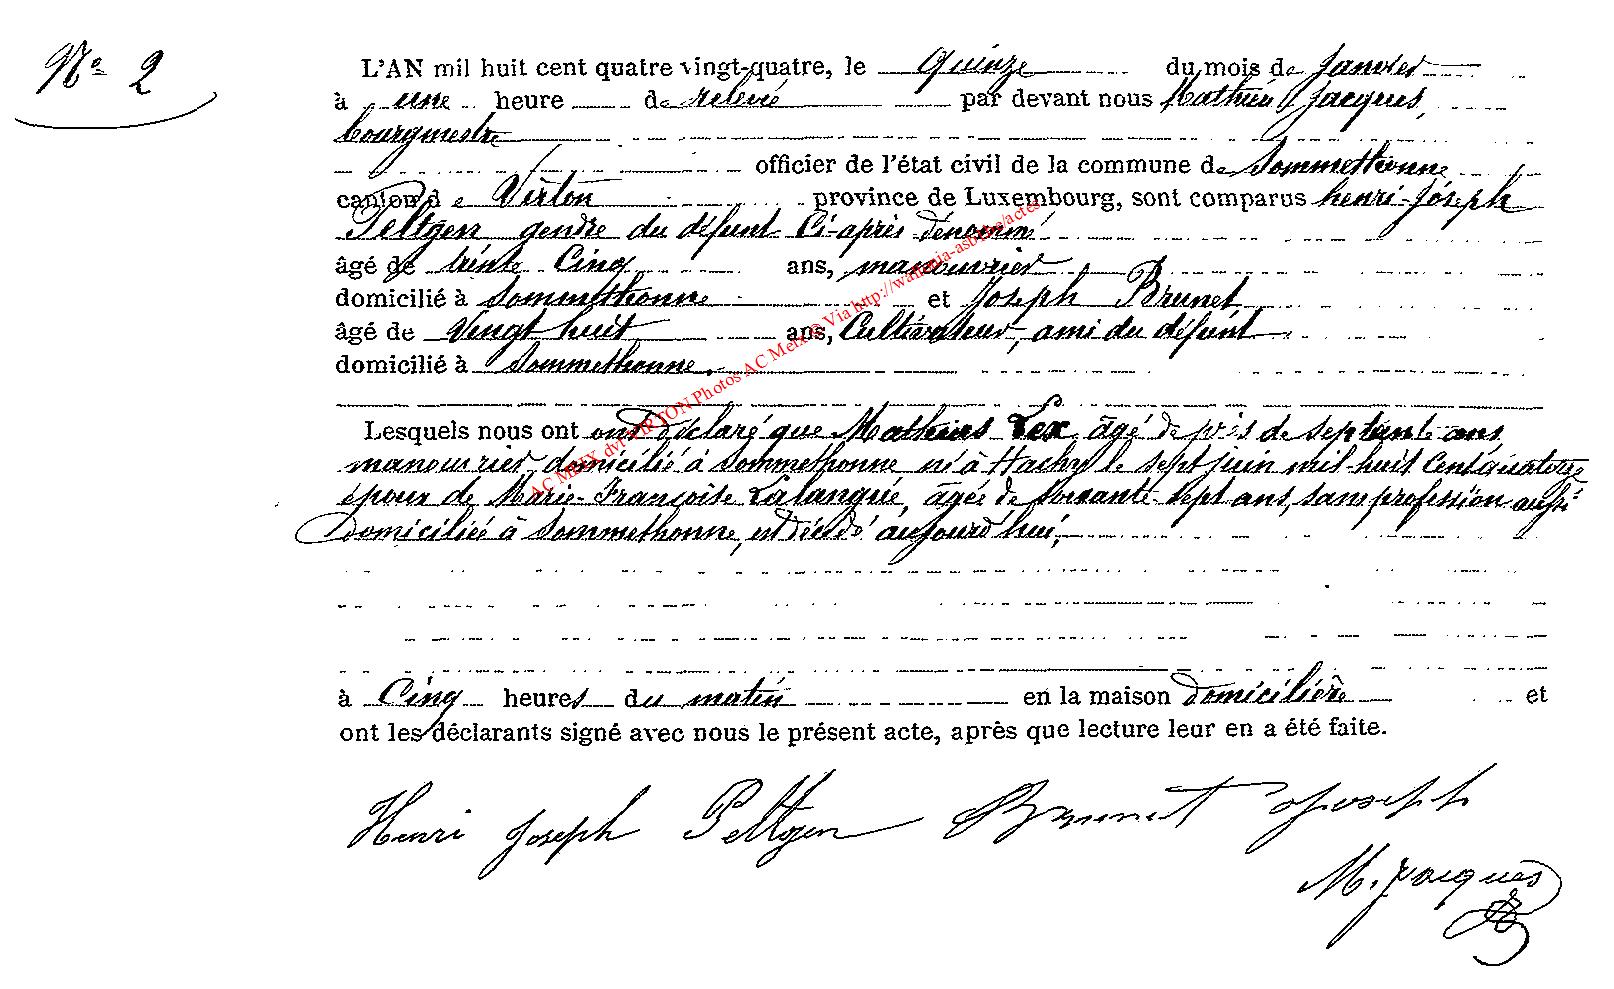 N° 2
L'AN mil huit cent quatre vingt-quatre, le quinze du mois de Janvier
à une heure de relevé par devant nous Mathieu Jacques,
bourgmestre
officier de l'état civil de la commune de Sommethonne
canton de Virton province de Luxembourg, sont comparus henri-Joseph
Peltgen gendre du défunt Ci-après dénommé
âgé de trente Cinq ans, manouvrier
domicilié à Sommethonne et Joseph Brunet
âgé de Vingt huit ans, Cultivateur, ami du défunt
domicilié à Sommethonne.
Lesquels nous ont ont déclaré que Mathias Lex, âgé de près de septante ans
manouvrier, domicilié à Sommethonne né à Hachy le sept juin mil huit Cent quatorze
époux de Marie-Françoise Lalangue, âgée de soixante-sept ans, sans profession aussi
domiciliée à Sommethonne, est décédé aujourd'hui,
à Cinq heures du matin en la maison domicilière et
ont les déclarants signé avec nous le présent acte, après que lecture leur en a été faite.
Henri Joseph Peltgen Brunet Joseph
M. Jacques
AC MEIX dvt VIRTON Photos AC Meix © Via http://wallonia-asbl.be/actes